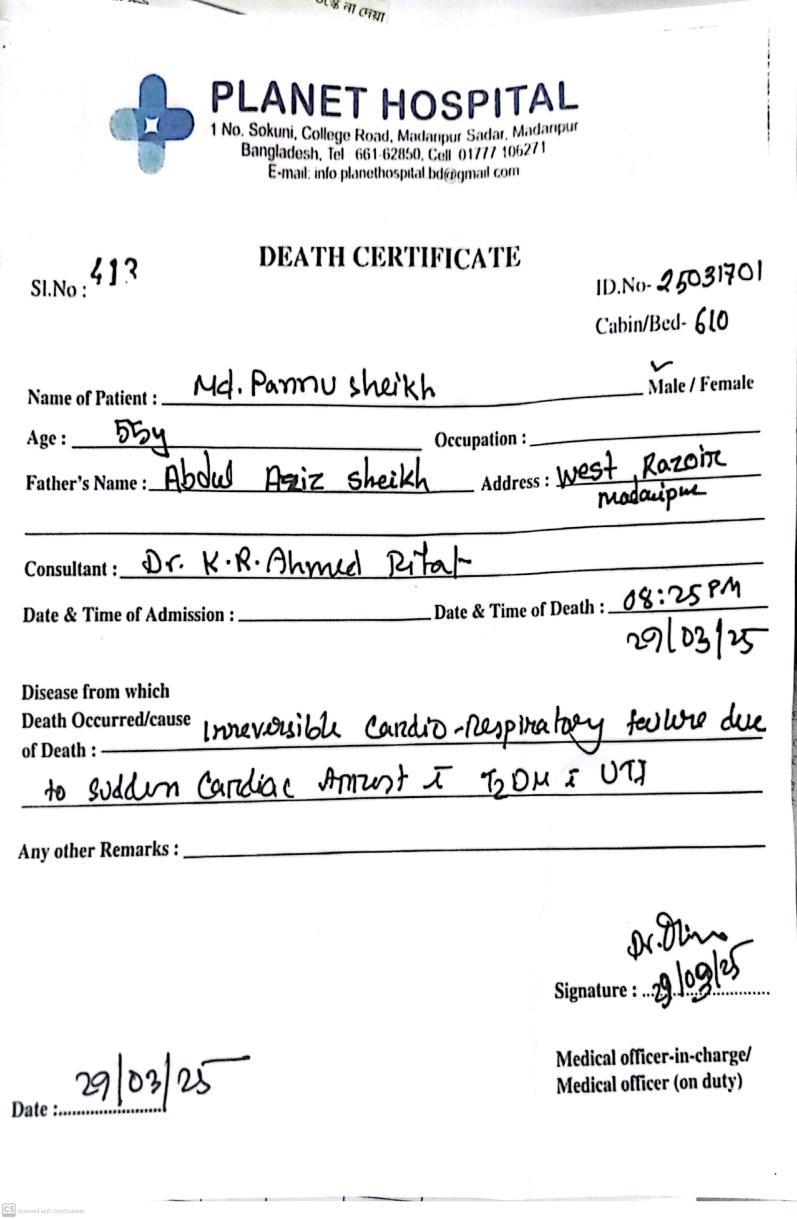 না দেয়া
PLANET HOSPITAL
1 No. Sokuni, College Road, Madaripur Sadar, Madaripur
Bangladesh, Tel 661-62850, Cell 01777 106271
E-mail: info.planethospital.bd@gmail.com
DEATH CERTIFICATE
Sl.No : 413
ID.No- 25031701
Cabin/Bed- 610
Name of Patient : Md. Pannu sheikh Male / Female
Age : 55y Occupation :
Father's Name : Abdul Aziz sheikh Address : West Razoir
Madaripur
Consultant : Dr. K.R. Ahmed Rifat
Date & Time of Admission : Date & Time of Death : 08:25 PM
29/03/25
Disease from which
Death Occurred/cause Irreversible Cardio-Respiratory failure due
of Death :
to sudden Cardiac Arrest c̄ T2DM c̄ UTI
Any other Remarks :
Dr.
Signature : 29/03/25
Medical officer-in-charge/
Medical officer (on duty)
29/03/25
Date :
CS Scanned with CamScanner